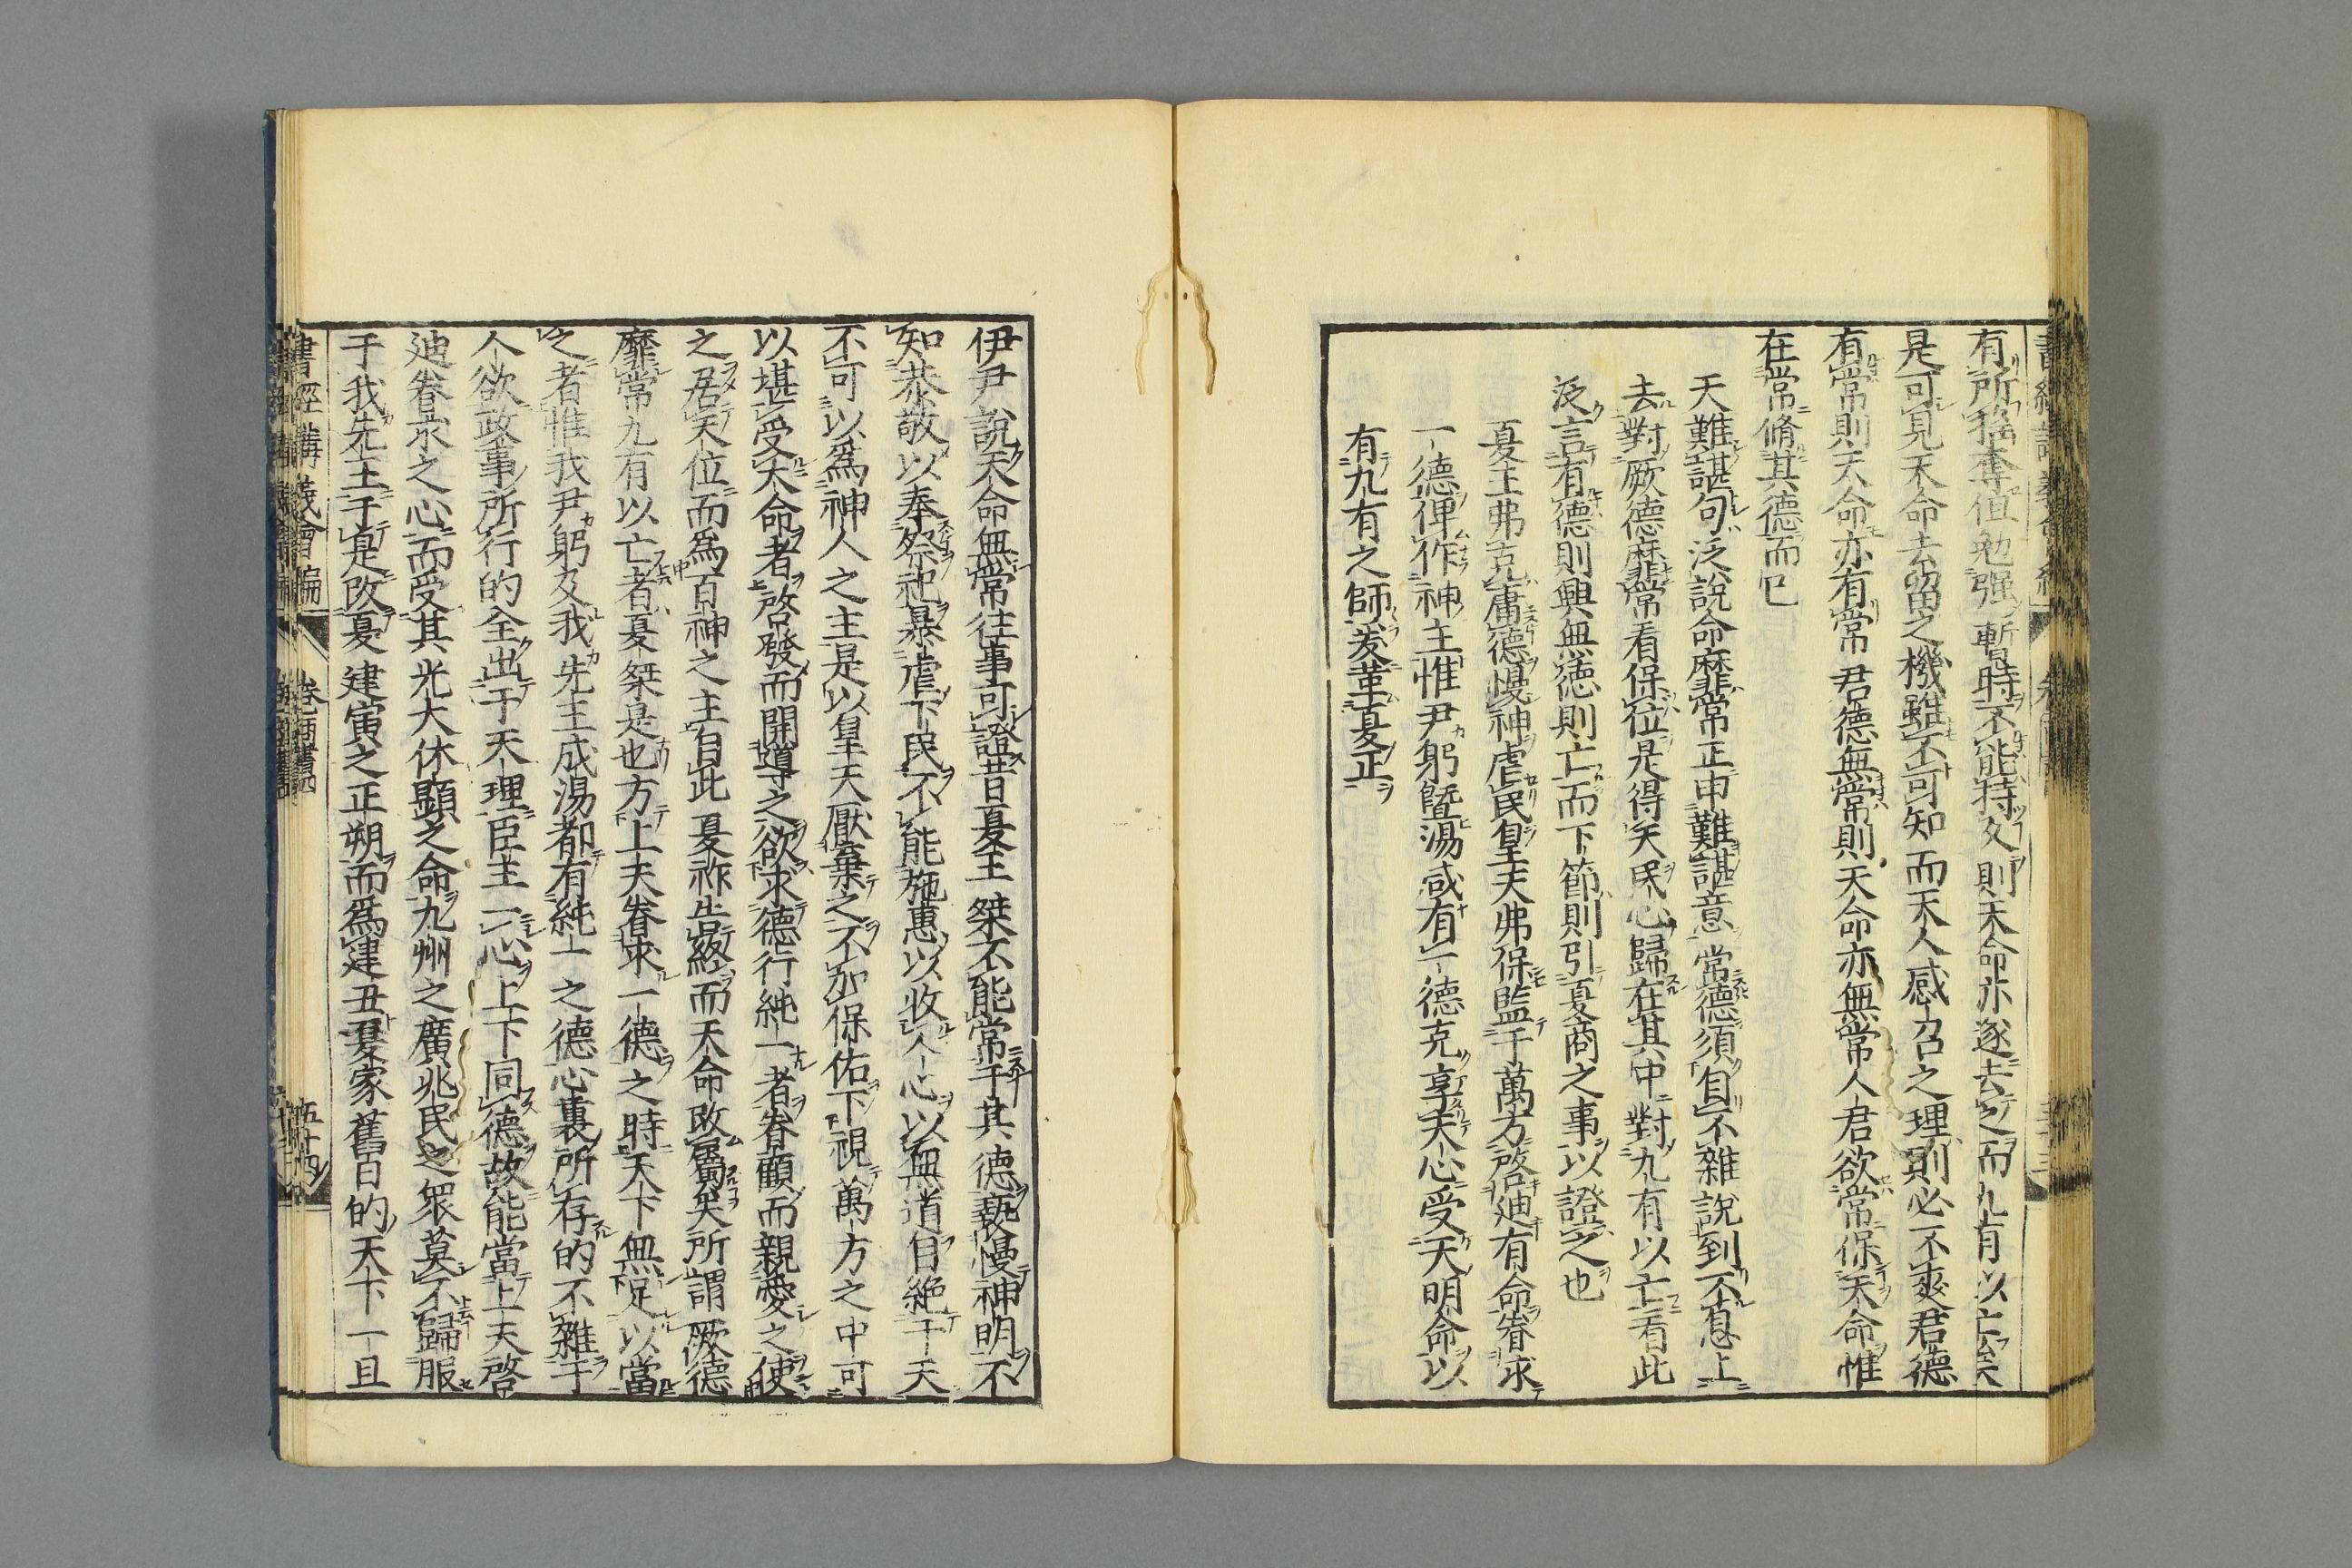 有所移奪值勉强暫時不能持久則天命亦遂去之而九有以亡矣
是可見天命去留之機雖不可知而天人感召之理則必不爽君德
有常則天命亦有常君德無常則天命亦無常人君欲常保天命惟
在常脩其德而已
天難諶句泛說命靡常正申難諶意常德須自不雜說到不息上
去對厥德靡常看保位是得天民心歸在其中對九有以亡看此
泛言有德則興無德則亡而下節則引夏商之事以證之也
夏王弗克庸德慢神虐民皇天弗保監于萬方啓迪有命眷求
一德俾作神主惟尹躬曁湯咸有一德克享天心受天明命以
有九有之師爰革夏正
伊尹說天命無常往事可證昔夏王桀不能常于其德褻慢神明不
知恭敬以奉祭祀暴虐下民不能施惠以收人心以無道自絶于天
不可以爲神人之主是以皇天厭棄之不加保佑下視萬方之中可
以堪受大命者啓發而開導之欲求德行純一者眷顧而親愛之使
之君天位而爲百神之主自此夏祚告終而天命改屬矣所謂厥德
靡常九有以亡者夏桀是也方上天眷求一德之時天下無足以當
之者惟我尹躬及我先王成湯都有純一之德心裏所存的不雜于
人欲政事所行的全出于天理臣主一心上下同德故能當上天啓
迪眷求之心而受其光大休顯之命九州之廣兆民之衆莫不歸服
于我先王于是改夏建寅之正朔而爲建丑夏家舊日的天下一旦
書經講義會編 卷商書四 五十四